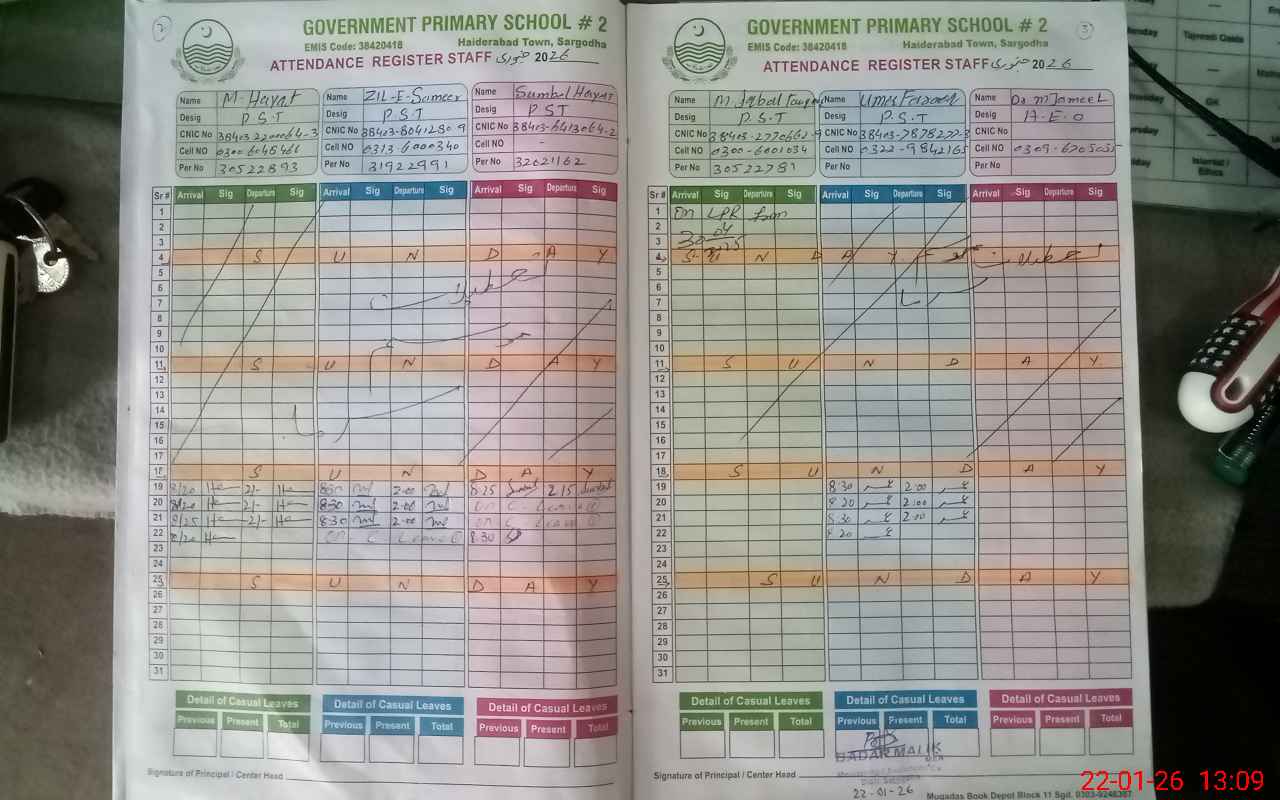 2
GOVERNMENT PRIMARY SCHOOL # 2
EMIS Code: 38420418 Haiderabad Town, Sargodha
ATTENDANCE REGISTER STAFF جنوری 2026
Name M. Hayat
Desig P.S.T
CNIC No 38403
Cell NO 0300
Per No 30522893
Name ZIL-E-Sameer
Desig P.S.T
CNIC No 38403-8041280 9
Cell NO 0313-6000340
Per No 31922991
Name Sumbal Hayat
Desig P.S.T
CNIC No 38403-6413064-2
Cell NO -
Per No 32021162
Sr # Arrival Sig Departure Sig Arrival Sig Departure Sig Arrival Sig Departure Sig
1
2
3
4 S U N D A Y
5
6 تعطیلات
7
8
9
10
11 S U N D A Y
12
13
14
15
16
17
18 S U N D A Y
19 8/20 2/- 830 2.00 8.25 2.15
20 8/20 2/- 830 2.00 on C. Leave
21 8/25 2/- 830 2.00 on C. Leave
22 8/20 on C. Leave 8.30
23
24
25 S U N D A Y
26
27
28
29
30
31
Detail of Casual Leaves Detail of Casual Leaves Detail of Casual Leaves
Previous Present Total Previous Present Total Previous Present Total
Signature of Principal / Center Head
3
GOVERNMENT PRIMARY SCHOOL # 2
EMIS Code: 38420418 Haiderabad Town, Sargodha
ATTENDANCE REGISTER STAFF جنوری 2026
Name M. Iqbal
Desig P.S.T
CNIC No 38403-2770662-9
Cell NO 0300-6001034
Per No 30522781
Name Umer Farooq
Desig P.S.T
CNIC No 38403-7878272-3
Cell NO 0322-9842165
Per No
Name Dr M Jameel
Desig A.E.O
CNIC No
Cell NO 0309-6705055
Per No
Sr # Arrival Sig Departure Sig Arrival Sig Departure Sig Arrival Sig Departure Sig
1 on LPR from
2 30-04
3
4 S U N D A Y تعطیلات
5
6
7 سرما
8
9
10
11 S U N D A Y
12
13
14
15
16
17
18 S U N D A Y
19 8.30 عمر 2.00 عمر
20 8.30 عمر 2.00 عمر
21 8.30 عمر 2.00 عمر
22 8.20 عمر
23
24
25 S U N D A Y
26
27
28
29
30
31
Detail of Casual Leaves Detail of Casual Leaves Detail of Casual Leaves
Previous Present Total Previous Present Total Previous Present Total
BADAR MALIK
22-01-26
Signature of Principal / Center Head
Muqadas Book Depot Block 11 Sgd. 0303-9248387
22-01-26 13:09